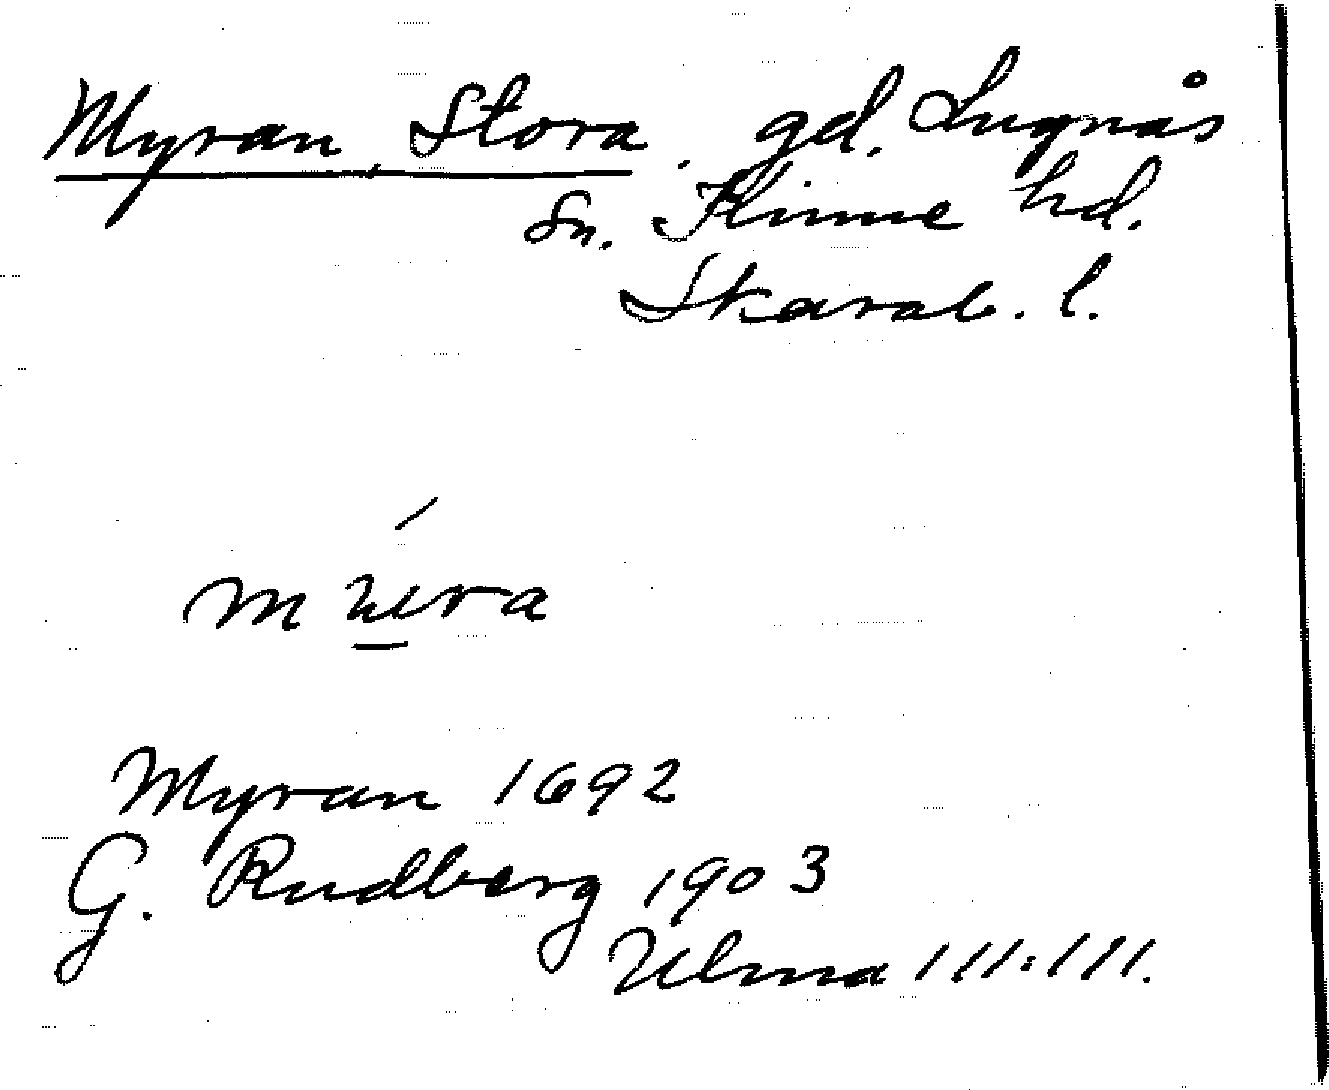 Myran, Stora. gd. Lugnås
Sn. Kinne hd.
Skarab. l.
Myran 1692
G. Rudberg 1903
Ulma 111:111.